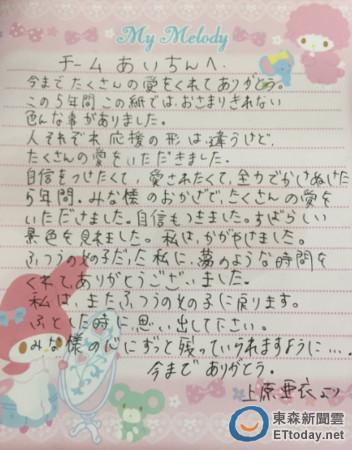 My Melody
チームあいちんへ.
今までたくさんの愛をくれてありがとう。
この5年間この紙では、おさまりきれない
色んな事がありました。
人それぞれ応援の形は違うけど、
たくさんの愛をいただきました。
自信をつけたくて、愛されたくて、全力でかけぬけた
5年間。みな様のおかげで、たくさんの愛を
いただけました。自信もつきました。すばらしい
景色を見れました。私は、かがやけました。
ふつうの女の子だった私に、夢のような時間を
くれてありがとうございました。
私は、またふつうの女の子に戻ります。
ふとした時に、思い出して下さい。
みな様の心にずっと残っていられますように….
今までありがとう。
上原亜衣より
東森新聞雲
ETtoday.net